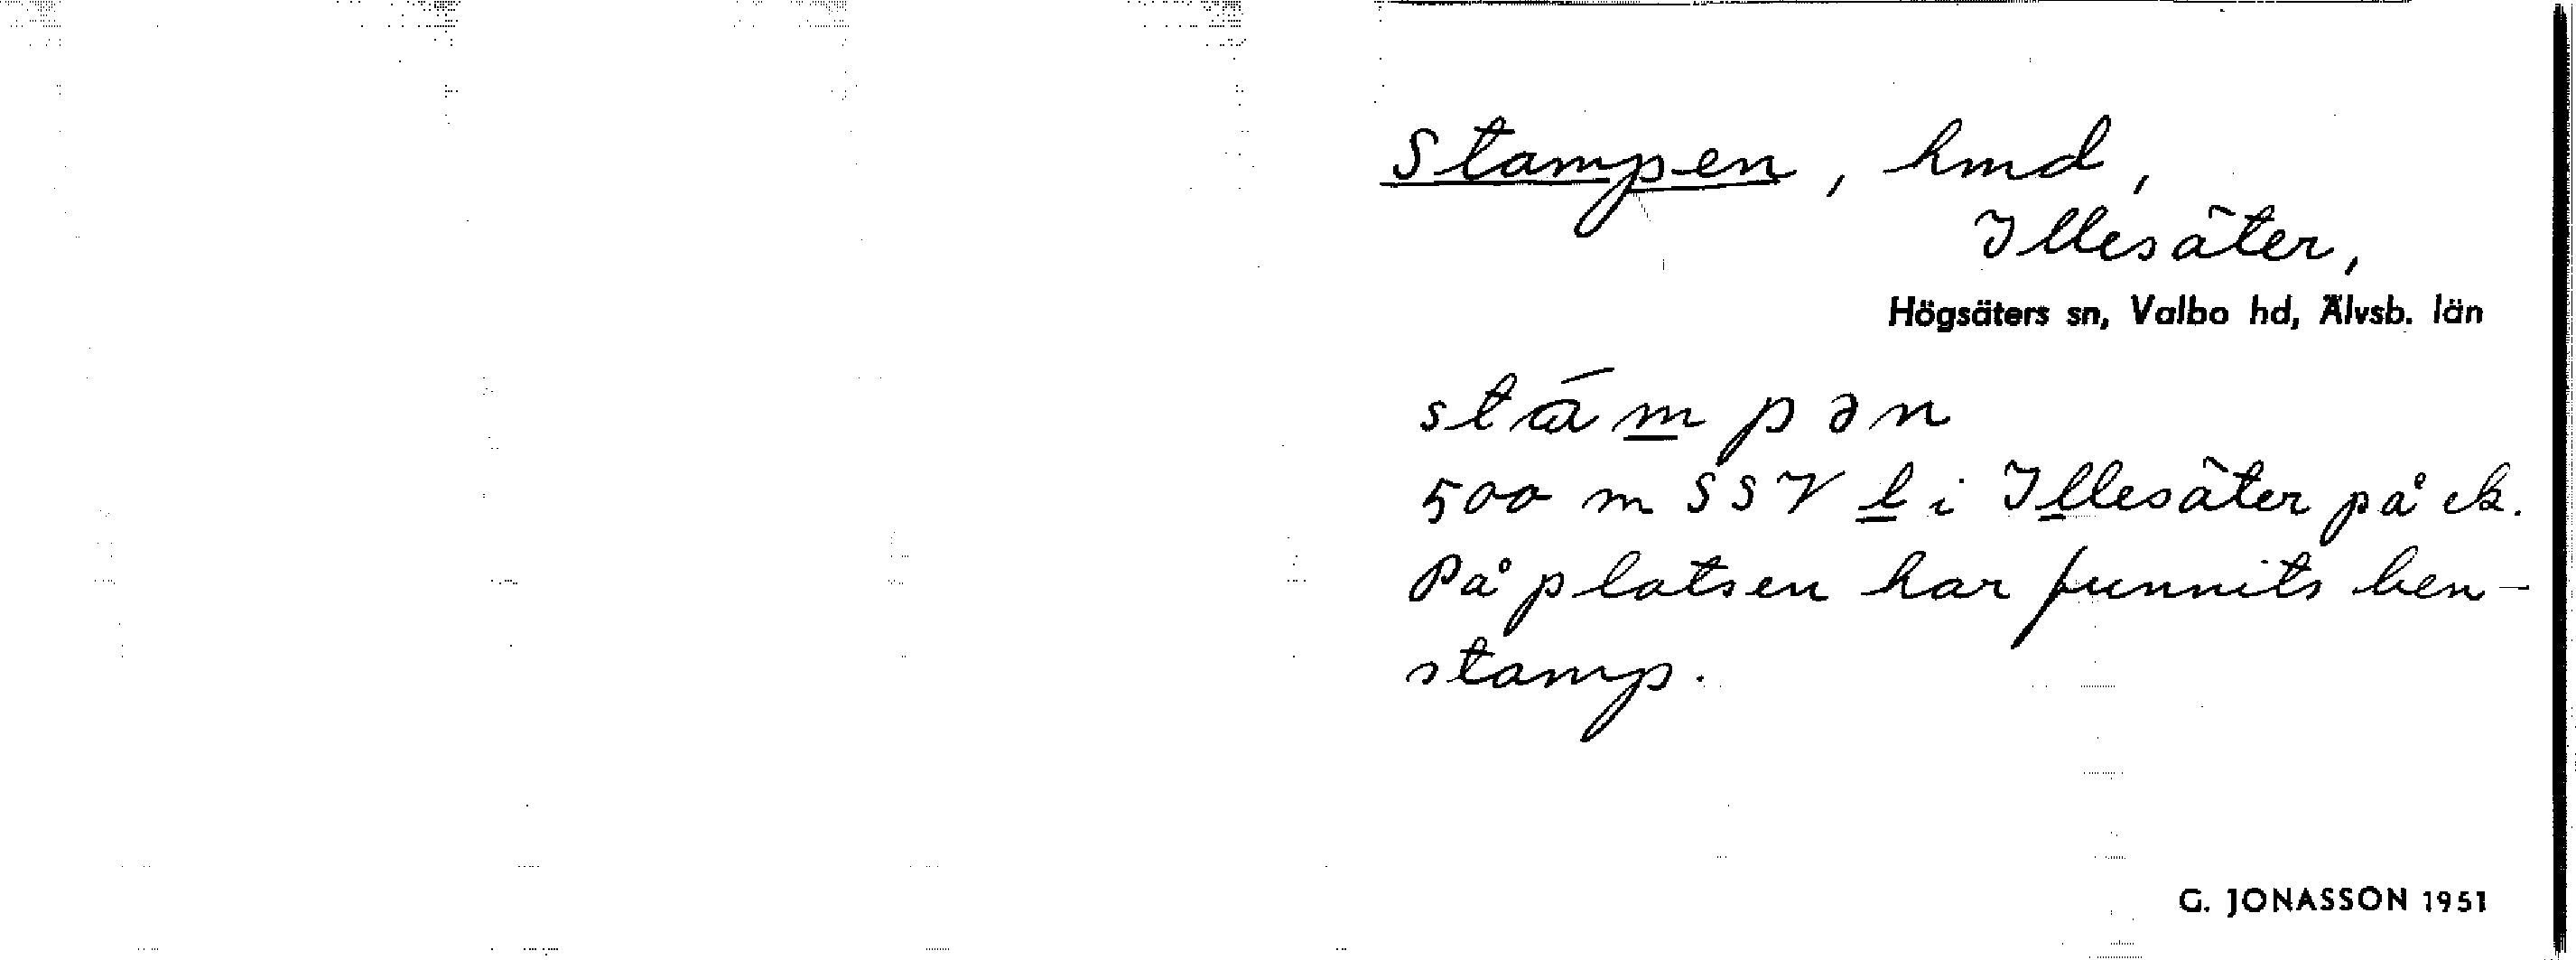 Stampen, hmd,
Illesäter,
Högsäters sn, Valbo hd, Älvsb. län
stám̲pən
500 m SSV l̲ i Illesäter på ek.
På platsen har funnits ben-
stamp.
G. JONASSON 1951